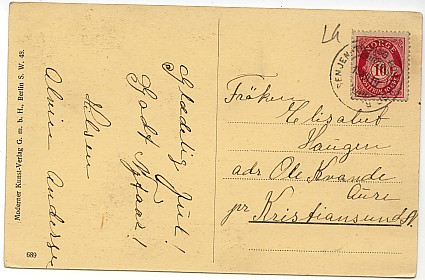 Moderner Kunst-Verlag G. m. b. H., Berlin S. W. 48.
689
Glædelig Jul!
Godt Nytaar!
Hilsen
NORGE
10
Frøken
Elisabet
Haugen
adr Ole Kvande
Aure
pr Kristiansund N.